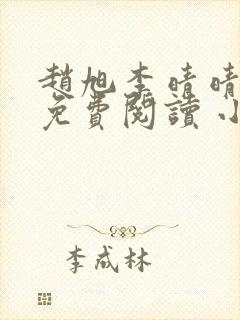 趙旭李晴晴
免費閱讀小
李成林